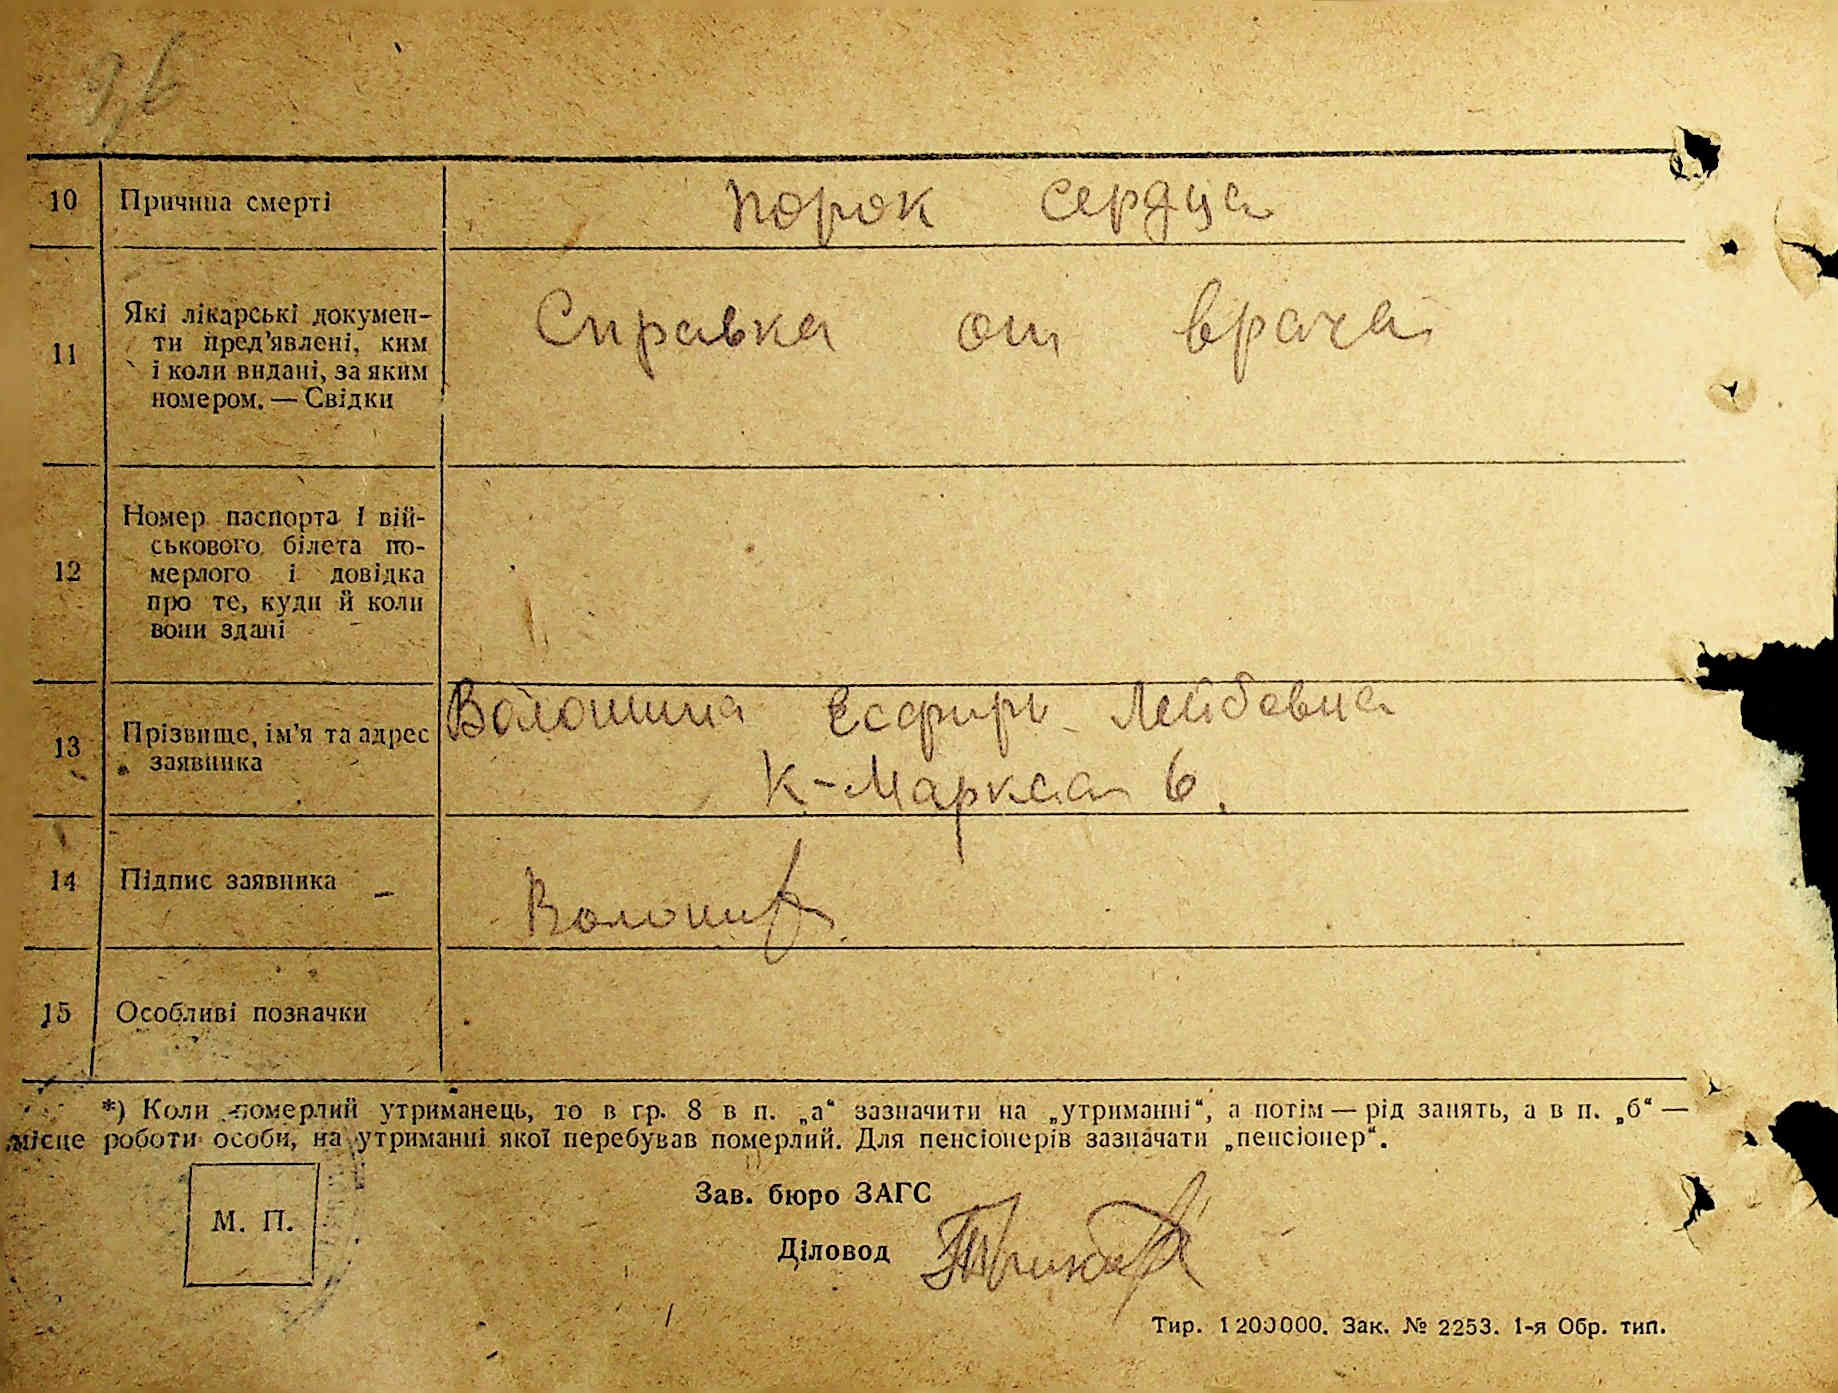 10 Причина смерті порок сердца
11 Які лікарські докумен-
ти пред'явлені, ким
і коли видані, за яким
номером. — Свідки
Справка от врача
12 Номер паспорта і вій-
ськового білета по-
мерлого і довідка
про те, куди й коли
вони здані
13 Прізвище, ім'я та адрес
заявника
Волошина Есфирь Лейбовна
К-Маркса 6.
14 Підпис заявника
15 Особливі позначки
*) Коли померлий утриманець, то в гр. 8 в п. „а“ зазначити на „утриманні“, а потім — рід занять, а в п. „б“ —
місце роботи особи, на утриманні якої перебував померлий. Для пенсіонерів зазначати „пенсіонер“.
М. П.
Зав. бюро ЗАГС
Діловод
Тир. 1200000. Зак. № 2253. 1-я Обр. тип.